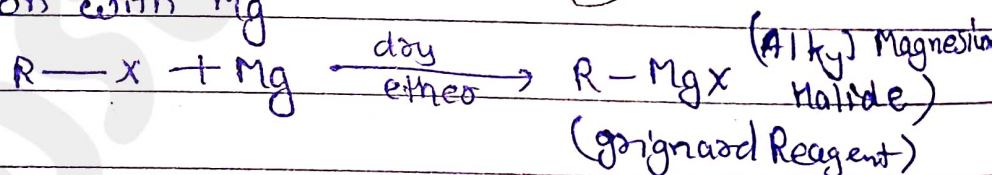 on with Mg
R — X + Mg dry ether → R – MgX (Alky) Magnesium Halide)
(grignard Reagent)